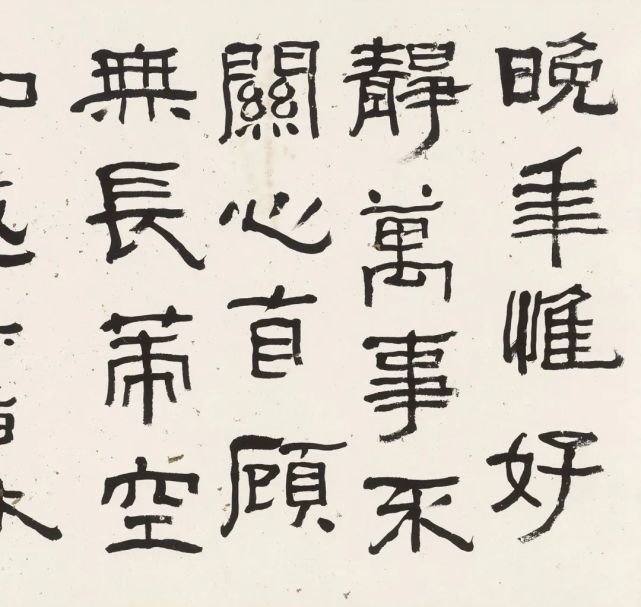 晚年惟好
靜萬事不
關心自顧
無長策空